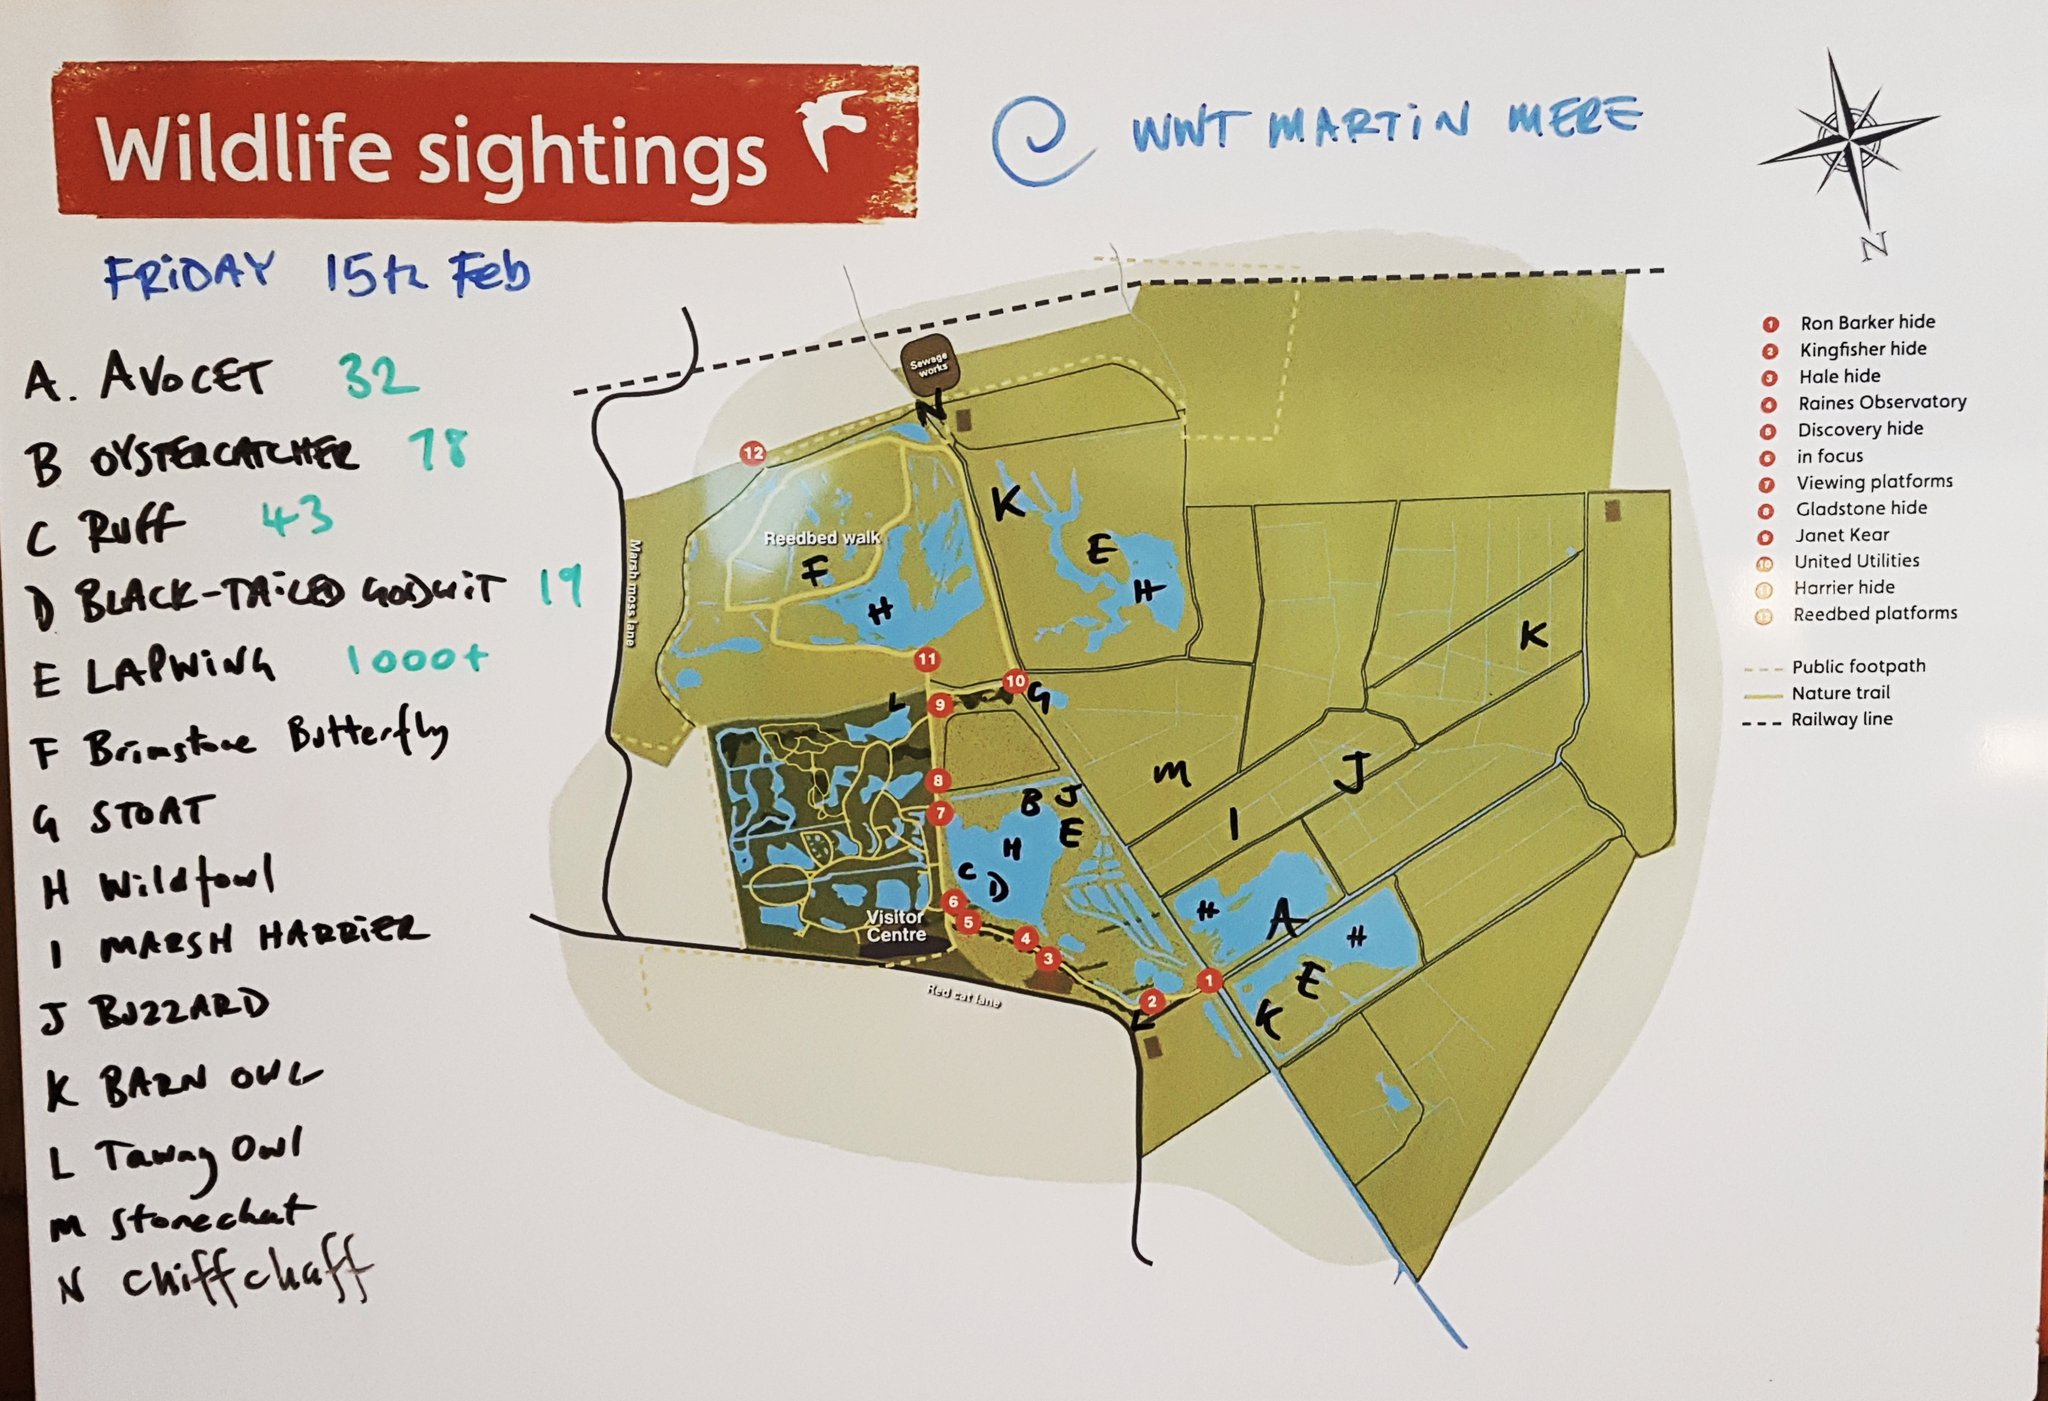 Wildlife sightings
@ WWT MARTIN MERE
N
FRIDAY 15th Feb
A. AVOCET 32
B OYSTERCATCHER 78
C Ruff 43
D BLACK-TAILED GODWIT 19
E LAPWING 1000+
F Brimstone Butterfly
G STOAT
H Wildfowl
I MARSH HARRIER
J BUZZARD
K BARN OWL
L Tawny Owl
M Stonechat
N Chiffchaff
Sewage
works
N
12
K
Reedbed walk
E
F
H
H
Marsh moss lane
K
11
10
G
L
9
M
J
8
B J
7
I
E
H
C
D
H
A
6
Visitor
Centre
5
4
H
3
E
1
Red cat lane
2
K
L
1 Ron Barker hide
2 Kingfisher hide
3 Hale hide
4 Raines Observatory
5 Discovery hide
6 in focus
7 Viewing platforms
8 Gladstone hide
9 Janet Kear
10 United Utilities
Harrier hide
Reedbed platforms
Public footpath
Nature trail
Railway line